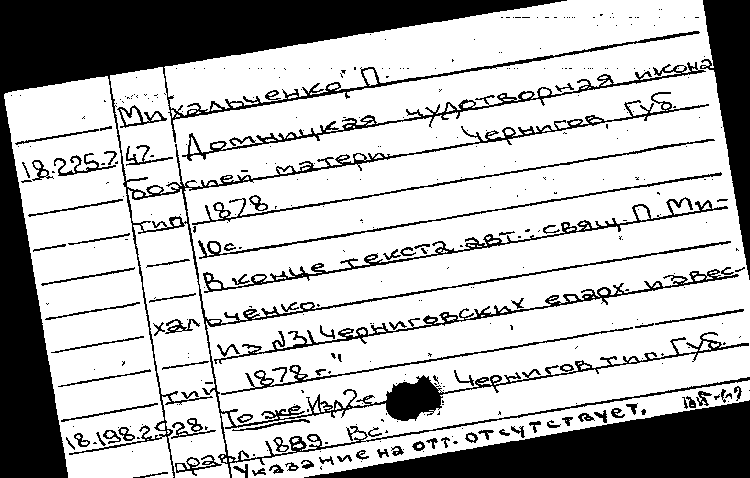 Михальченко, П.
18.225.2.47. Домницкая чудотворная икона
божией матери. Чернигов, Губ.
тип., 1878.
10с.
В конце текста авт.: свящ. П. Ми-
хальченко.
"Из №31 Черниговских епарх. извес-
тий 1878 г."
18.198.2.528. То же. Изд. 2-е Чернигов, тип. Губ.
правл. 1889. 8с.
Указание на отт. отсутствует.